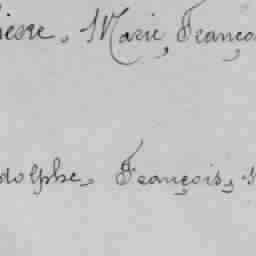 ierre, Marie, Franço
dolphe, François,